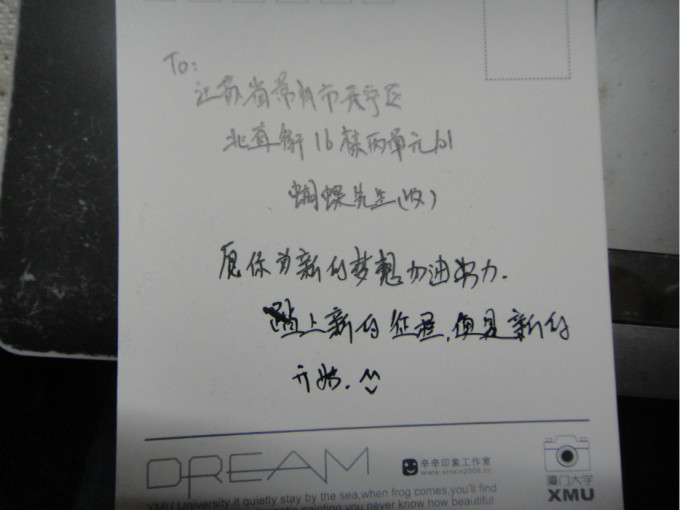 To:
江苏省常州市天宁区
北直街16幢丙单元101
蝴蝶先生(收)
愿你为新的梦想加油努力.
踏上新的征程,便是新的
开始.
DREAM
辛辛印象工作室
www.sinsin2008.cn
厦门大学
XMU
XMU University,it quietly stay by the sea,when frog comes,you'll find
painting,you never know how beautiful